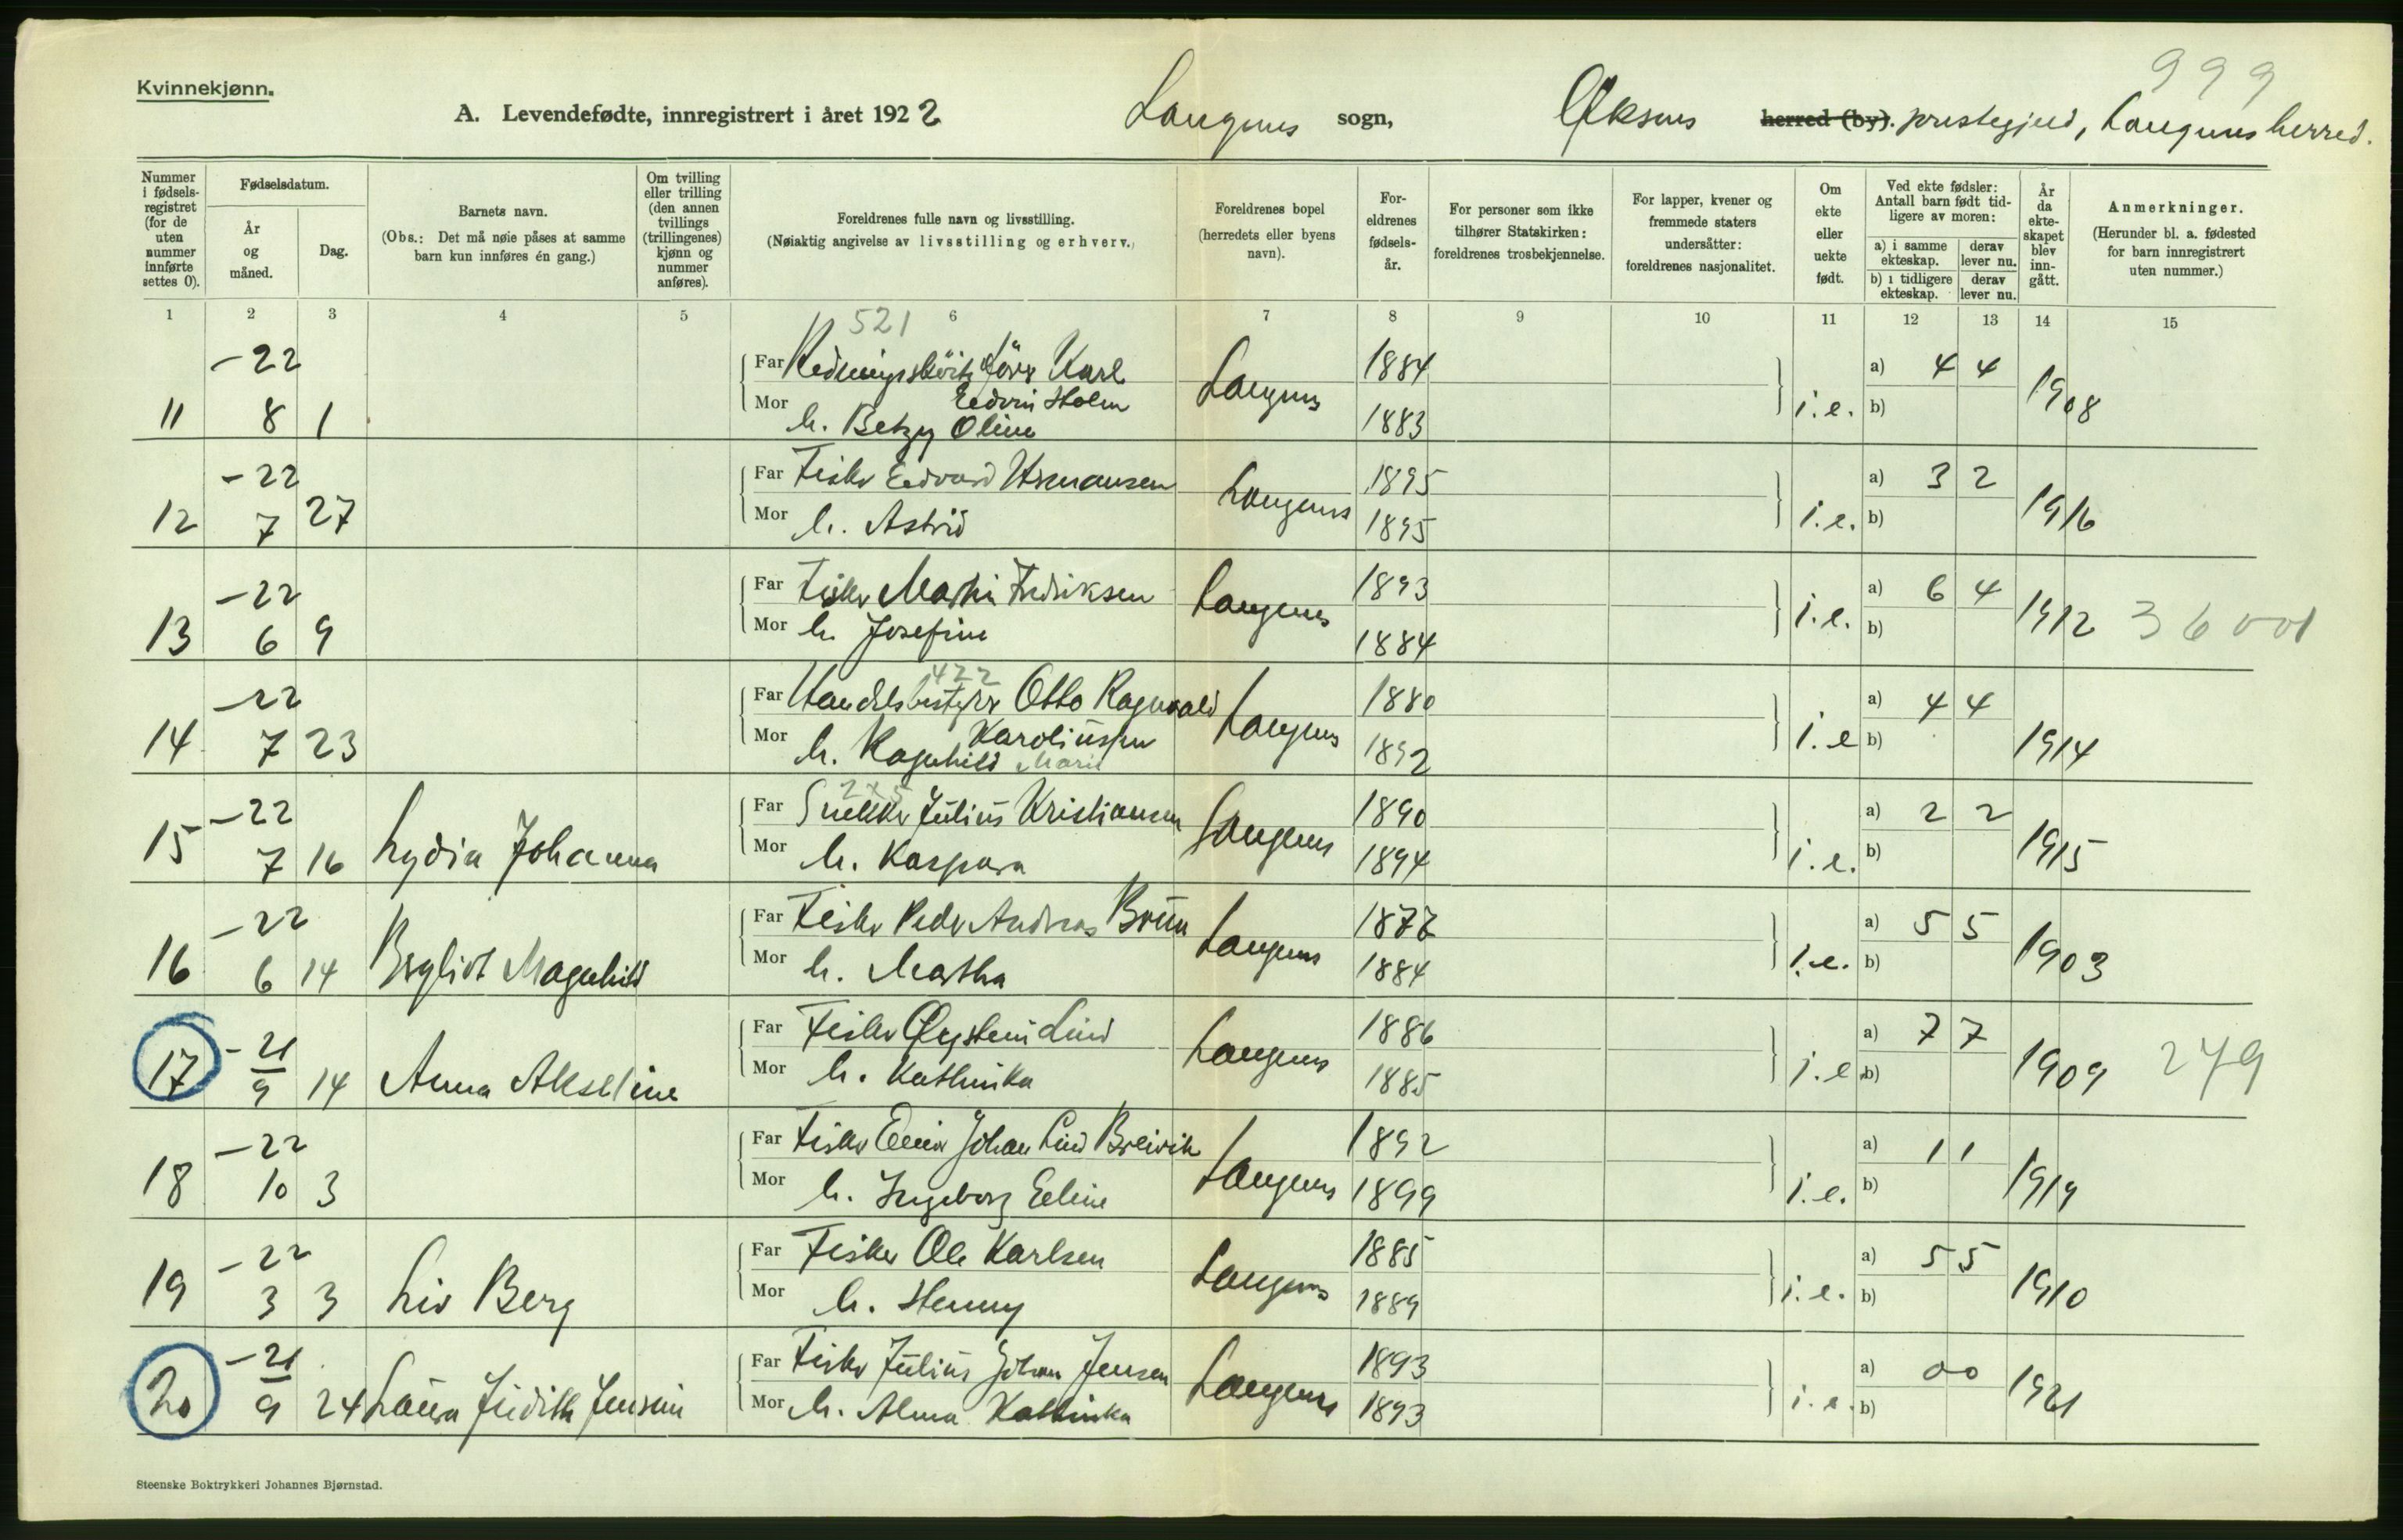 999
Kvinnekjønn.
A. Levendefødte, innregistrert i året 1922 Langenes sogn, Øksnes herred (by). prestegjeld, Langenes herred.
Nummer i fødsels-registret (for de uten nummer innførte settes 0).
Fødselsdatum.
År og måned.
Dag.
Barnets navn.
(Obs.: Det må nøie påses at samme barn kun innføres én gang.)
Om tvilling eller trilling (den annen tvillings (trillingenes) kjønn og nummer anføres).
Foreldrenes fulle navn og livsstilling.
(Nøiaktig angivelse av livsstilling og erhverv.)
Foreldrenes bopel (herredets eller byens navn).
For-eldrenes fødsels-år.
For personer som ikke tilhører Statskirken: foreldrenes trosbekjennelse.
For lapper, kvener og fremmede staters undersåtter: foreldrenes nasjonalitet.
Om ekte eller uekte født.
Ved ekte fødsler: Antall barn født tid-ligere av moren:
a) i samme ekteskap. derav lever nu.
b) i tidligere ekteskap. derav lever nu.
År da ekte-skapet blev inn-gått.
Anmerkninger.
(Herunder bl. a. fødested for barn innregistrert uten nummer.)
1 2 3 4 5 6 7 8 9 10 11 12 13 14 15
521
-22 Far Redningsskøitefører Karl Edvin Holm Langenes 1884 a) 4 4 1908
11 8 1 Mor h. Betzy Oline 1883 i.e. b)
-22 Far Fisker Edvard Hermansen Langenes 1895 a) 3 2 1916
12 7 27 Mor h. Astrid 1895 i.e. b)
-22 Far Fisker Martin Fredriksen Langenes 1893 a) 6 4 1912
13 6 9 Mor h. Josefine 1884 i.e. b)
422
-22 Far Handelsbestyrer Otto Ragnvald Karoliussen Langenes 1880 a) 4 4 1914
14 7 23 Mor h. Ragnhild Marie 1892 i.e b)
-22 Far Snekker Julius Kristiansen Langenes 1890 a) 2 2 1915
15 7 16 Lydia Johanna Mor h. Kaspara 1894 i.e. b)
-22 Far Fisker Peder Andreas Bruun Langenes 1877 a) 5 5 1903
16 6 14 Bergliot Magnhild Mor h. Martha 1884 i.e. b)
-21 Far Fisker Øystein Lind Langenes 1886 a) 7 7 1909 279
17 9 14 Anna Akseline Mor h. Kathinka 1885 i.e b)
-22 Far Fisker Einar Johan Lind Breivik Langenes 1892 a) 1 1 1919
18 10 3 Mor h. Ingeborg Eline 1899 i.e. b)
-22 Far Fisker Ole Karlsen Langenes 1885 a) 5 5 1910
19 3 3 Liv Berg Mor h. Henny 1889 i.e. b)
-21 Far Fisker Julius Johan Jensen Langenes 1893 a) 0 0 1921
20 9 24 Laura Judith Jensen Mor h. Alma Kathinka 1893 i.e. b)
Steenske Boktrykkeri Johannes Bjørnstad.